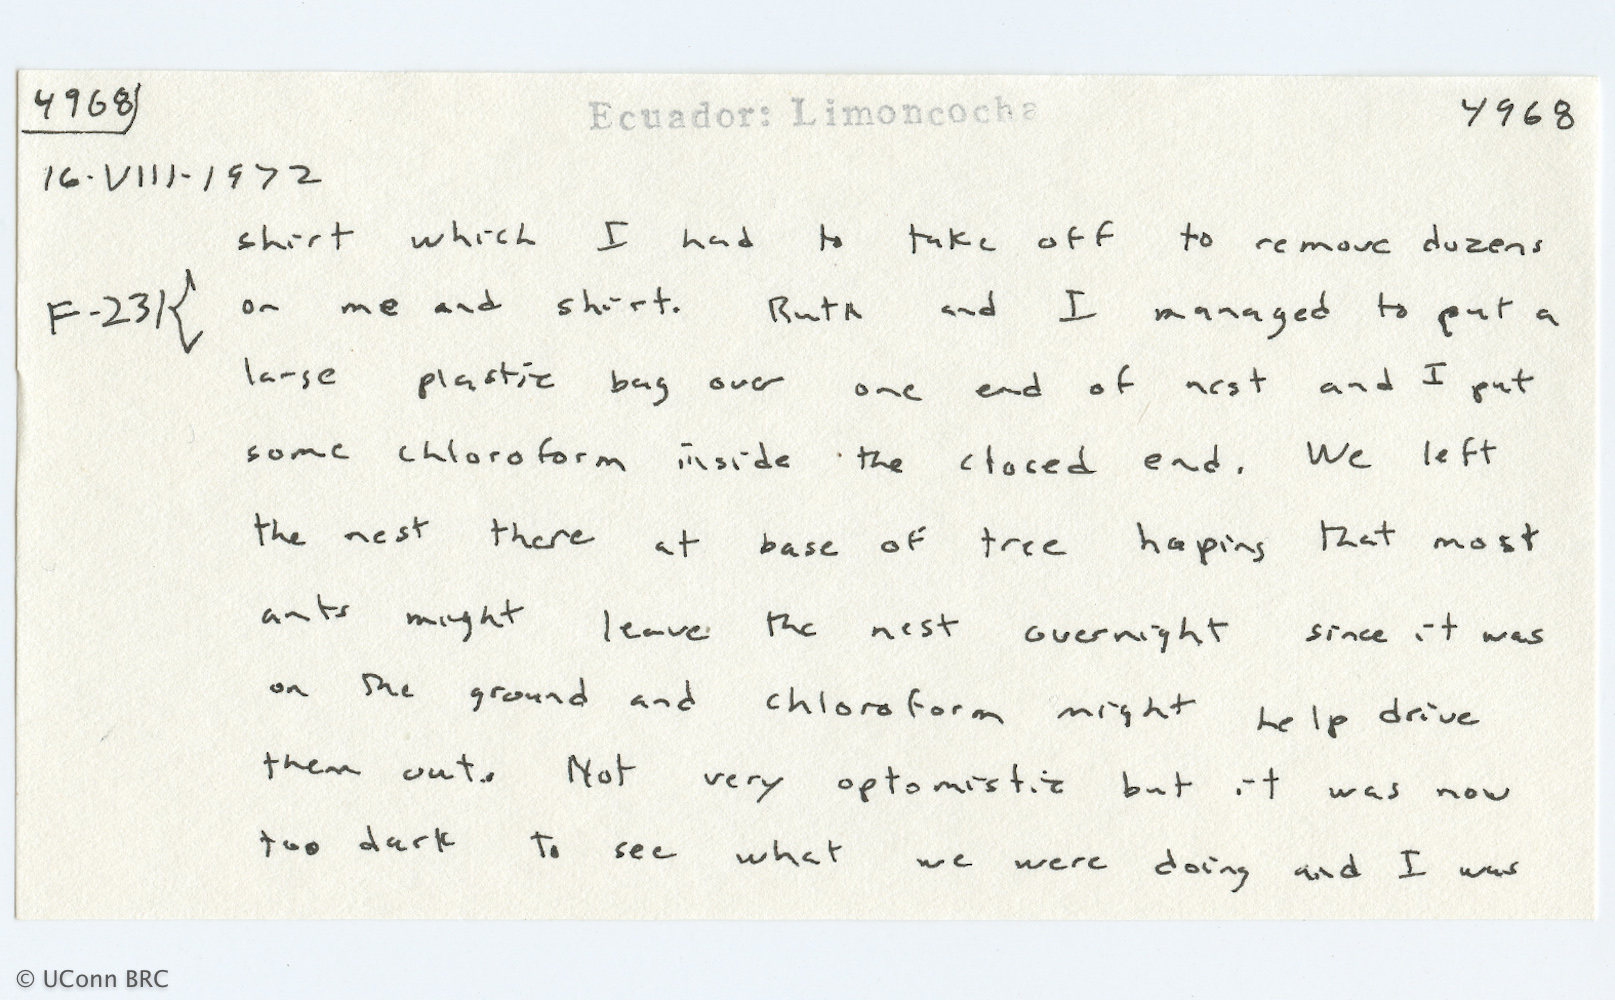 4968
Ecuador: Limoncocha
4968
16·VIII·1972
shirt which I had to take off to remove duzens
F-231{ on me and shirt. Ruth and I managed to put a
large plastic bag over one end of nest and I put
some chloroform inside the closed end. We left
the nest there at base of tree hoping that most
ants might leave the nest overnight since it was
on the ground and chloroform might help drive
them out. Not very optomistic but it was now
too dark to see what we were doing and I was
© UConn BRC